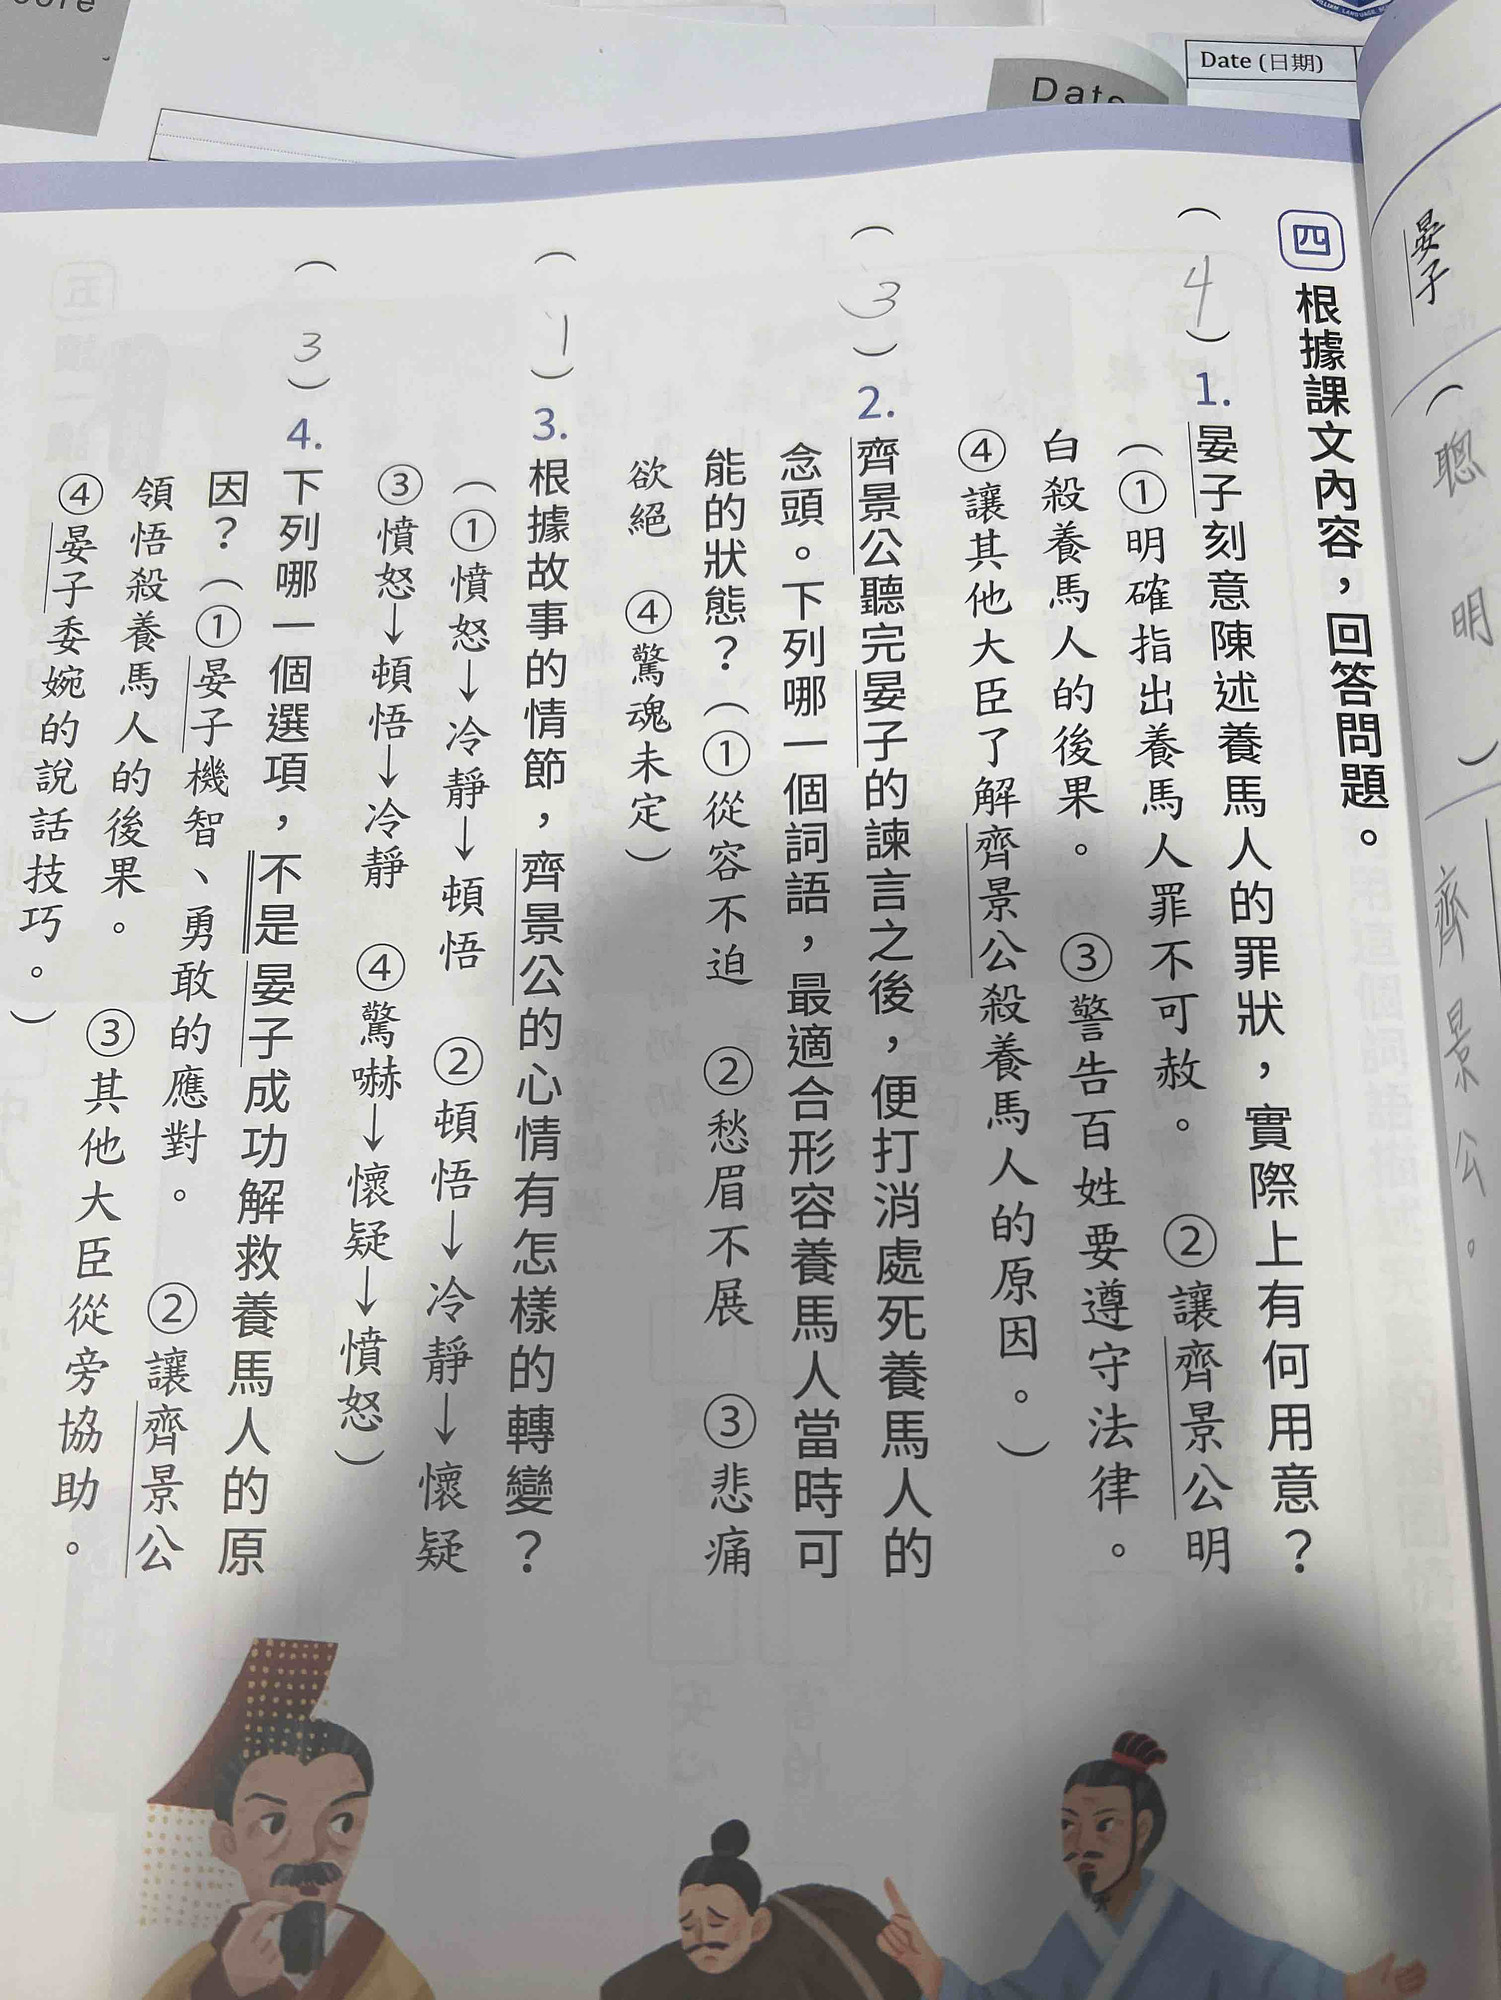 Date (日期)
Date
晏子
（聰明）
齊景公。
四 根據課文內容，回答問題。
（4）1.晏子刻意陳述養馬人的罪狀，實際上有何用意？
（①明確指出養馬人罪不可赦。 ②讓齊景公明
白殺養馬人的後果。 ③警告百姓要遵守法律。
④讓其他大臣了解齊景公殺養馬人的原因。）
（3）2.齊景公聽完晏子的諫言之後，便打消處死養馬人的
念頭。下列哪一個詞語，最適合形容養馬人當時可
能的狀態？（①從容不迫 ②愁眉不展 ③悲痛
欲絕 ④驚魂未定）
（1）3.根據故事的情節，齊景公的心情有怎樣的轉變？
（①憤怒→冷靜→頓悟 ②頓悟→冷靜→懷疑
③憤怒→頓悟→冷靜 ④驚嚇→懷疑→憤怒）
（3）4.下列哪一個選項，不是晏子成功解救養馬人的原
因？（①晏子機智、勇敢的應對。 ②讓齊景公
領悟殺養馬人的後果。 ③其他大臣從旁協助。
④晏子委婉的說話技巧。）